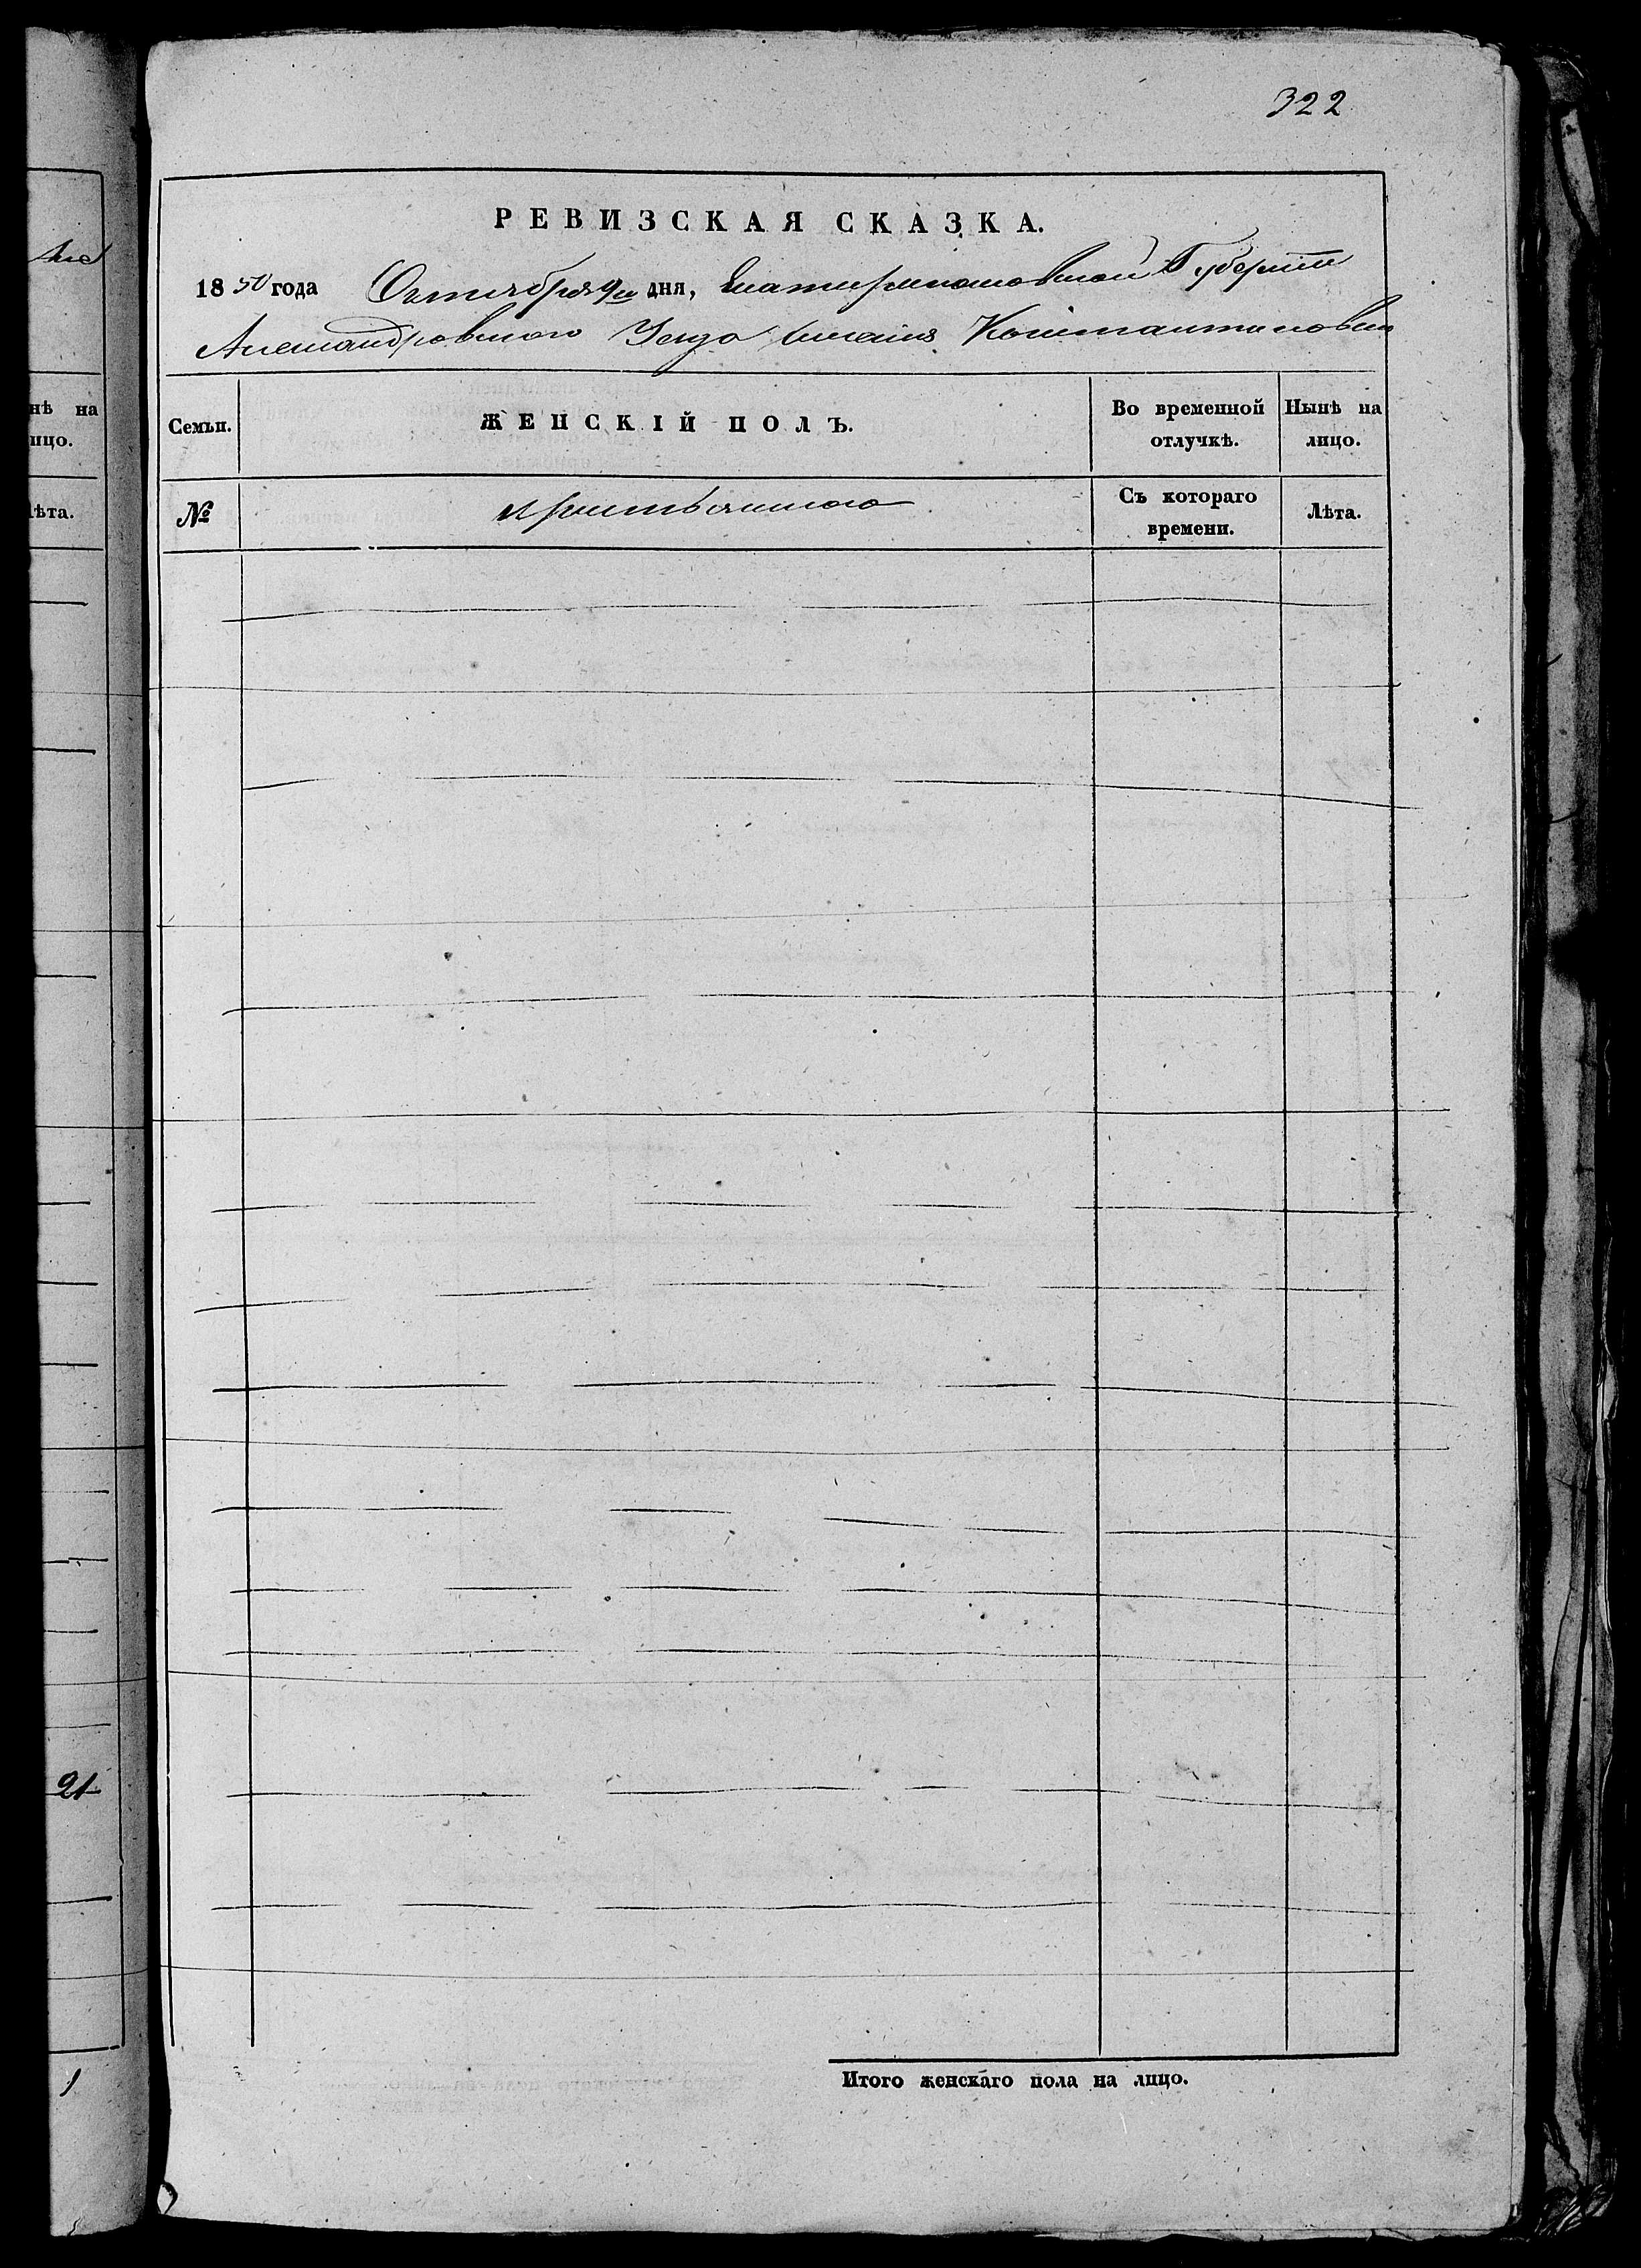 322
РЕВИЗСКАЯ СКАЗКА.
1850 года Октября 9го дня, Екатеринославской Губерніи
Александровского Уезда имения Константиновки
Семьи.
ЖЕНСКІЙ ПОЛЪ.
Во временной отлучкѣ.
Нынѣ на лицо.
№
Съ котораго времени.
Лѣта.
Итого женскаго пола на лицо.
нѣ на
ицо.
ѣта.
21
1